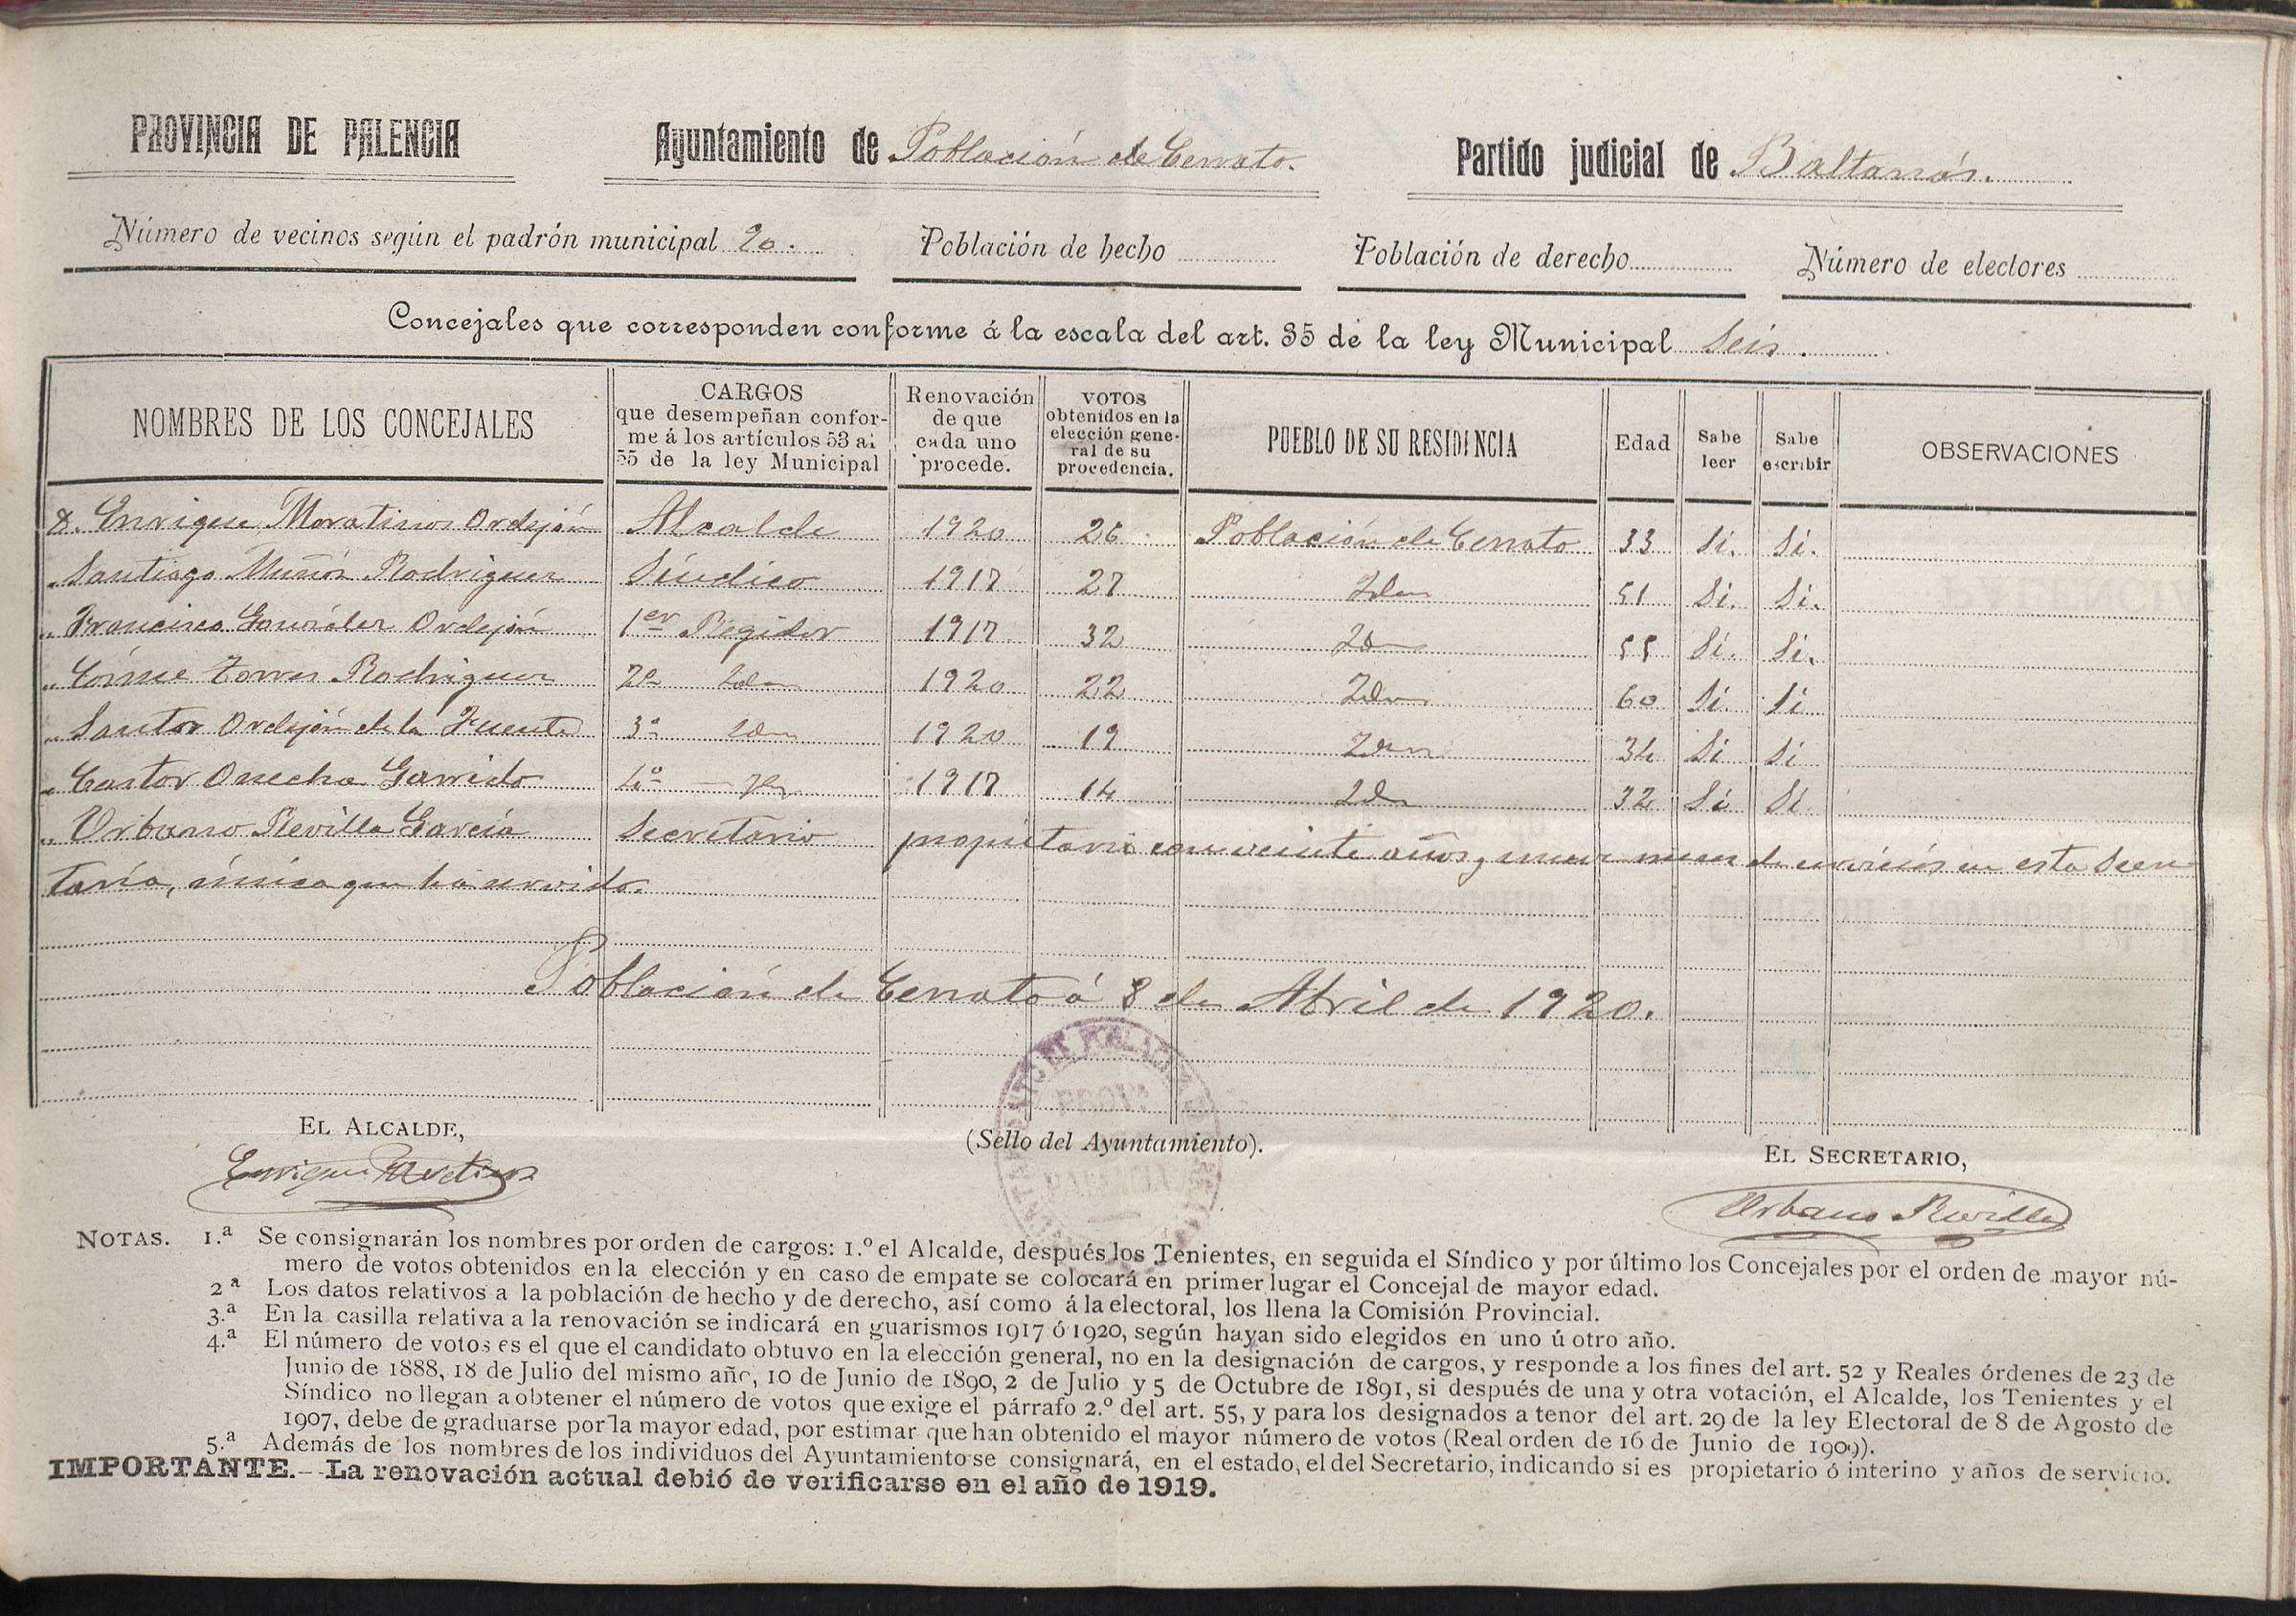 PROVINCIA DE PALENCIA Ayuntamiento de Población de Cerrato. Partido judicial de Baltanás.
Número de vecinos según el padrón municipal 90. Población de hecho Población de derecho Número de electores
Concejales que corresponden conforme á la escala del art. 35 de la ley Municipal Seis.
NOMBRES DE LOS CONCEJALES
CARGOS
que desempeñan confor-
me á los artículos 53 al
55 de la ley Municipal
Renovación
de que
cada uno
procede.
VOTOS
obtenidos en la
elección gene-
ral de su
procedencia.
PUEBLO DE SU RESIDENCIA
Edad
Sabe
leer
Sabe
escribir
OBSERVACIONES
D. Enrique Moratinos Ordejón Alcalde 1920 26 Población de Cerrato 33 Si. Si.
" Santiago Muñóz Rodriguez Síndico 1917 27 Idem 51 Si. Si.
" Francisco González Ordejón 1er Regidor 1917 32 Id 55 Si. Si.
" Cósme Torres Rodriguez 2º Idem 1920 22 Idm 60 Si. Si
" Santos Ordejón de la Fuente 3º Idm 1920 19 Idm 34 Si Si
" Castor Onecha Garrido 4º — Id 1917 14 Id 32 Si Si
" Urbano Revilla García Secretario propietario con veinte años y nueve meses de servicios en esta Secre
taría, única que ha servido.
Población de Cerrato á 8 de Abril de 1920.
EL ALCALDE,
Enrique Moratinos
(Sello del Ayuntamiento).
PROVª
PALENCIA
EL SECRETARIO,
Urbano Revilla
NOTAS. 1.ª Se consignarán los nombres por orden de cargos: 1.º el Alcalde, después los Tenientes, en seguida el Síndico y por último los Concejales por el orden de mayor nú-
mero de votos obtenidos en la elección y en caso de empate se colocará en primer lugar el Concejal de mayor edad.
2ª Los datos relativos a la población de hecho y de derecho, así como á la electoral, los llena la Comisión Provincial.
3.ª En la casilla relativa a la renovación se indicará en guarismos 1917 ó 1920, según hayan sido elegidos en uno ú otro año.
4.ª El número de votos es el que el candidato obtuvo en la elección general, no en la designación de cargos, y responde a los fines del art. 52 y Reales órdenes de 23 de
Junio de 1888, 18 de Julio del mismo año, 10 de Junio de 1890, 2 de Julio y 5 de Octubre de 1891, si después de una y otra votación, el Alcalde, los Tenientes y el
Síndico no llegan a obtener el número de votos que exige el párrafo 2.º del art. 55, y para los designados a tenor del art. 29 de la ley Electoral de 8 de Agosto de
1907, debe de graduarse por la mayor edad, por estimar que han obtenido el mayor número de votos (Real orden de 16 de Junio de 1909).
5.ª Además de los nombres de los individuos del Ayuntamiento se consignará, en el estado, el del Secretario, indicando si es propietario ó interino y años de servicio.
IMPORTANTE.—La renovación actual debió de verificarse en el año de 1919.